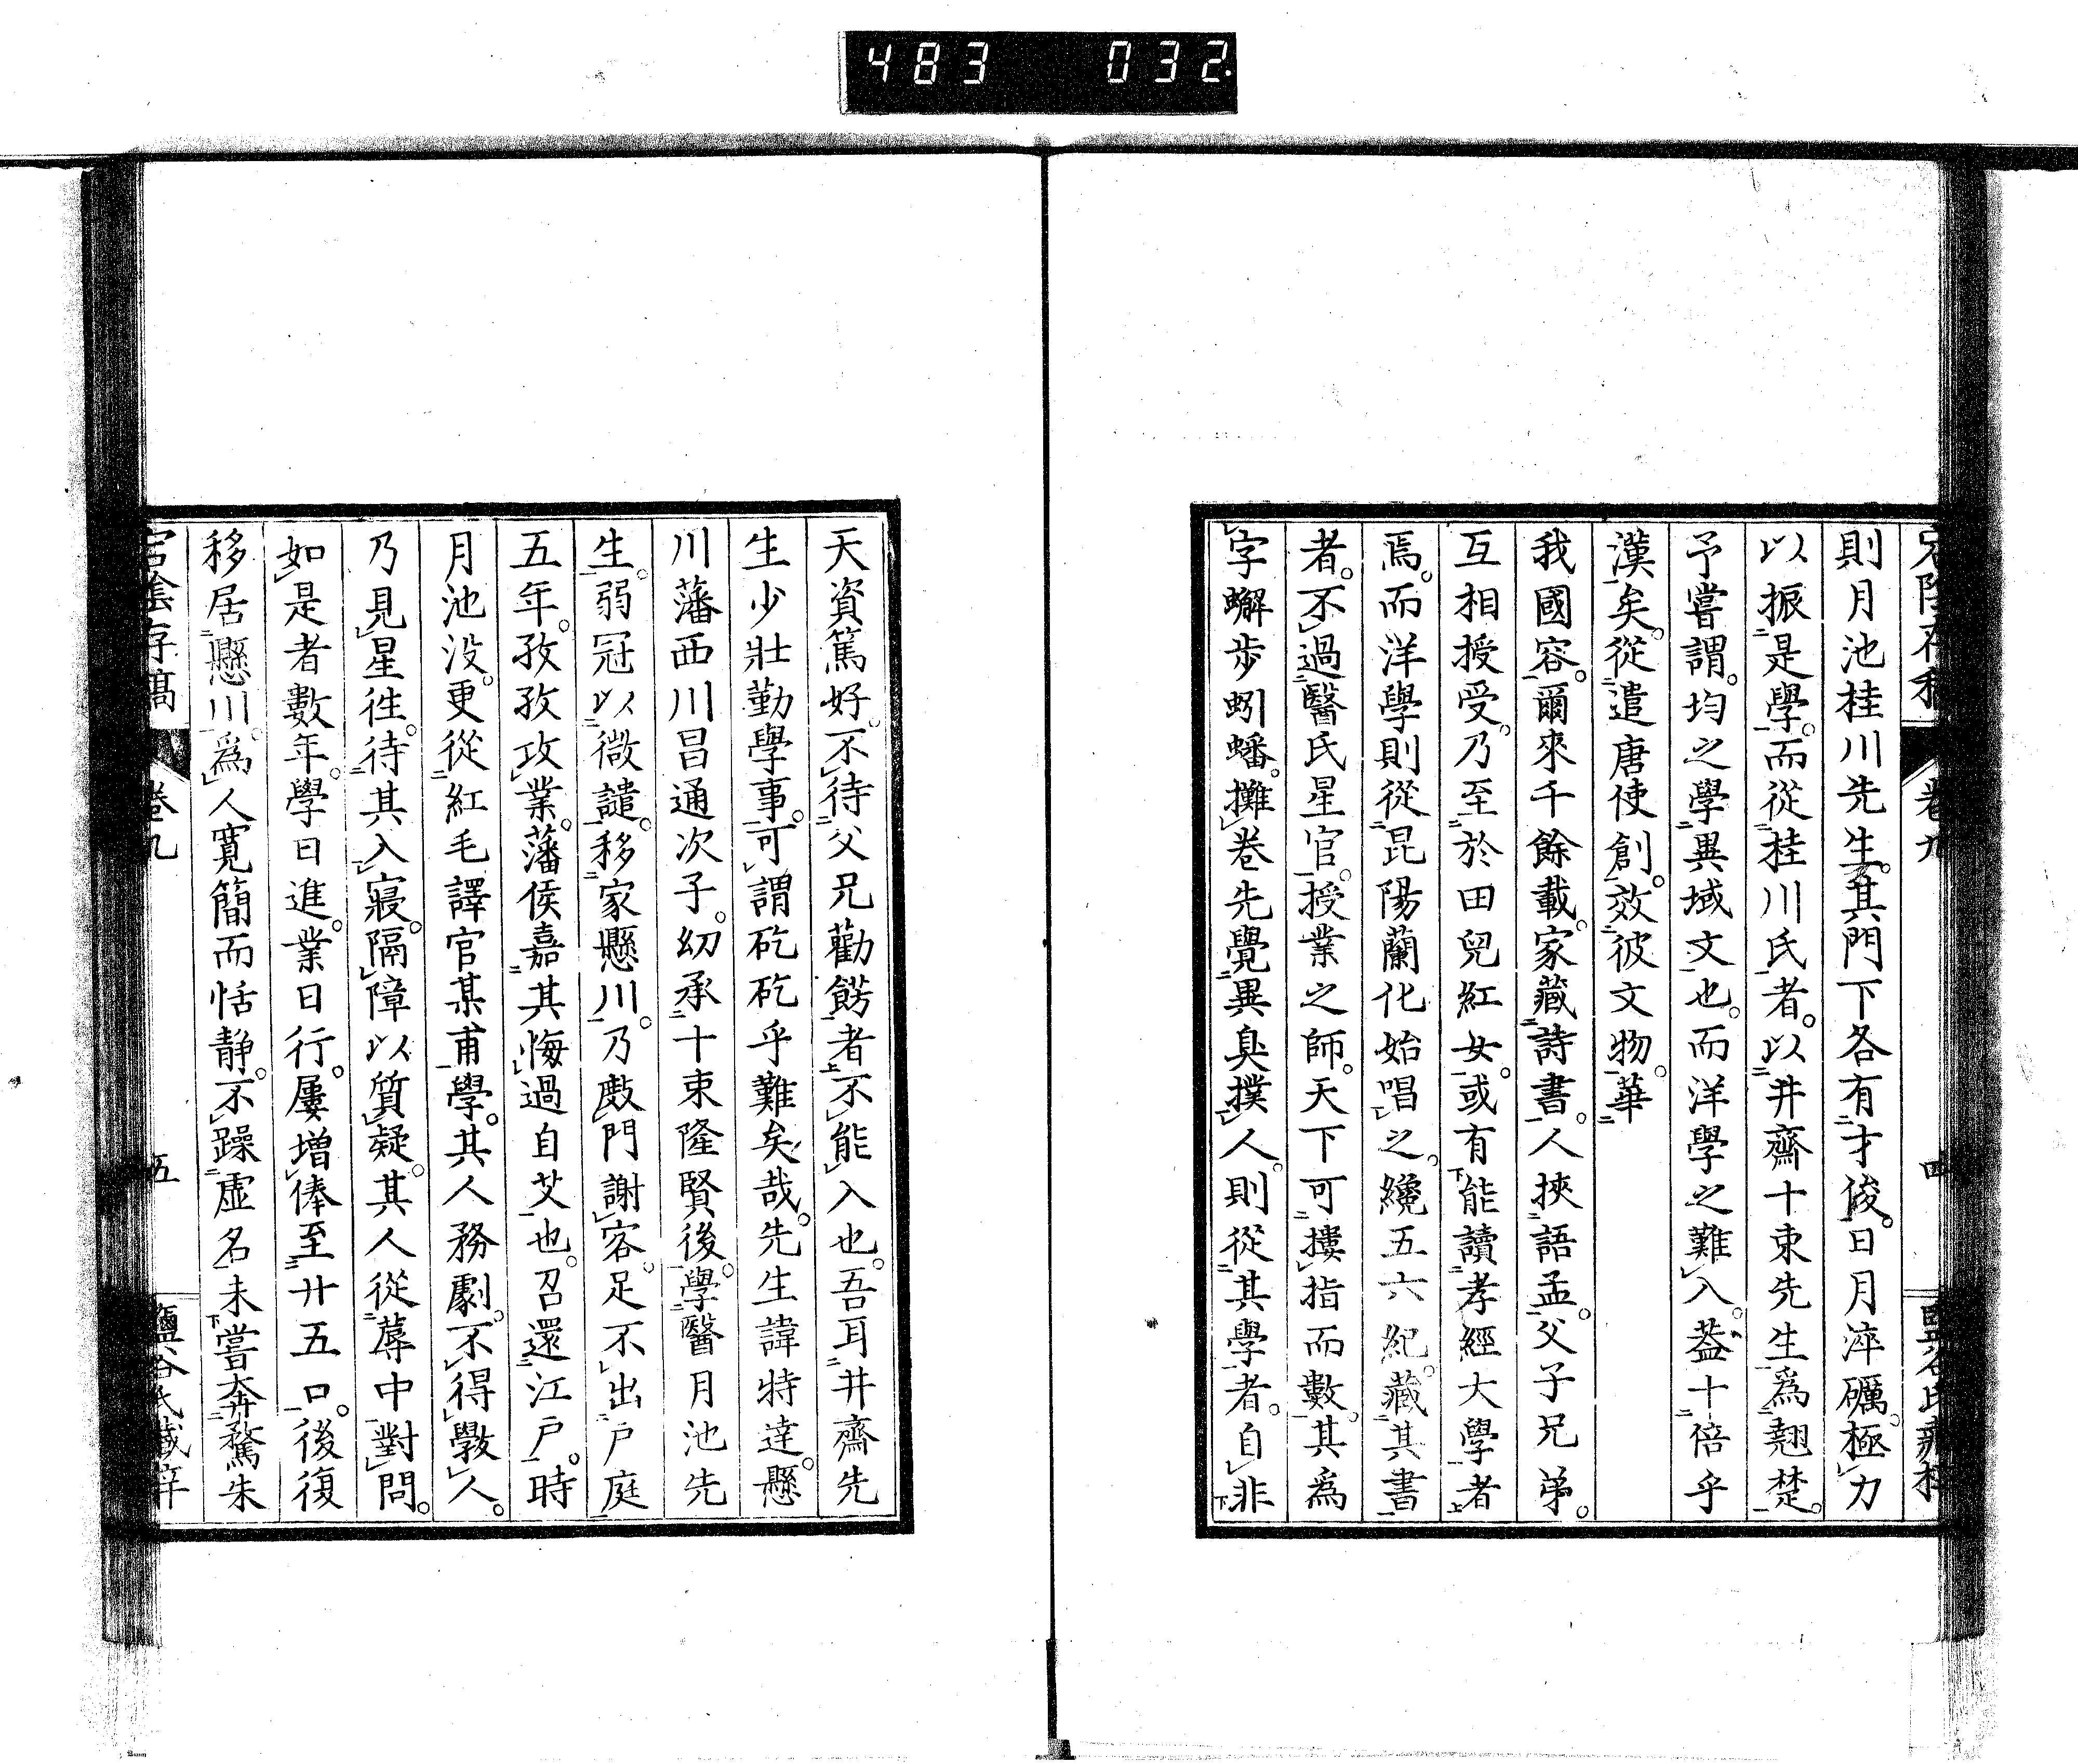 483 032
則月池桂川先生。其門下各有才俊。日月淬礪。極力
以振是學。而從桂川氏者。以井齋十束先生爲翹楚。
予嘗謂。均之學異域文也。而洋學之難入。蓋十倍乎
漢矣。從遣唐使創。效彼文物。華
我國容。爾來千餘載。家藏詩書。人挾語孟。父子兄弟。
互相授受。乃至於田兒紅女。或有能讀孝經大學者
焉。而洋學則從昆陽蘭化始唱之。纔五六紀。藏其書
者。不過醫氏星官。授業之師。天下可摟指而數。其爲
字蠏步蚓蟠。攤卷先覺異臭撲人。則從其學者。自非
天資篤好。不待父兄勸勞者不能入也。吾耳井齋先
生少壯勤學事。可謂矻矻乎難矣哉。先生諱特達。懸
川藩西川昌通次子。幼承十束隆賢後。學醫月池先
生。弱冠以微譴。移家懸川。乃廏門謝客。足不出戸庭
五年。孜孜攻業。藩侯嘉其悔過自艾也。召還江戸。時
月池没。更從紅毛譯官某甫學。其人務劇。不得敎人。
乃見星徃。待其入寢。隔障以質疑。其人從蓐中對問。
如是者數年。學日進。業日行。屢增俸至廿五口。後復
移居懸川。爲人寬簡而恬靜。不躁虛名。未嘗奔騖朱
宕陰存稿 卷九 五 鹽谷氏藏梓